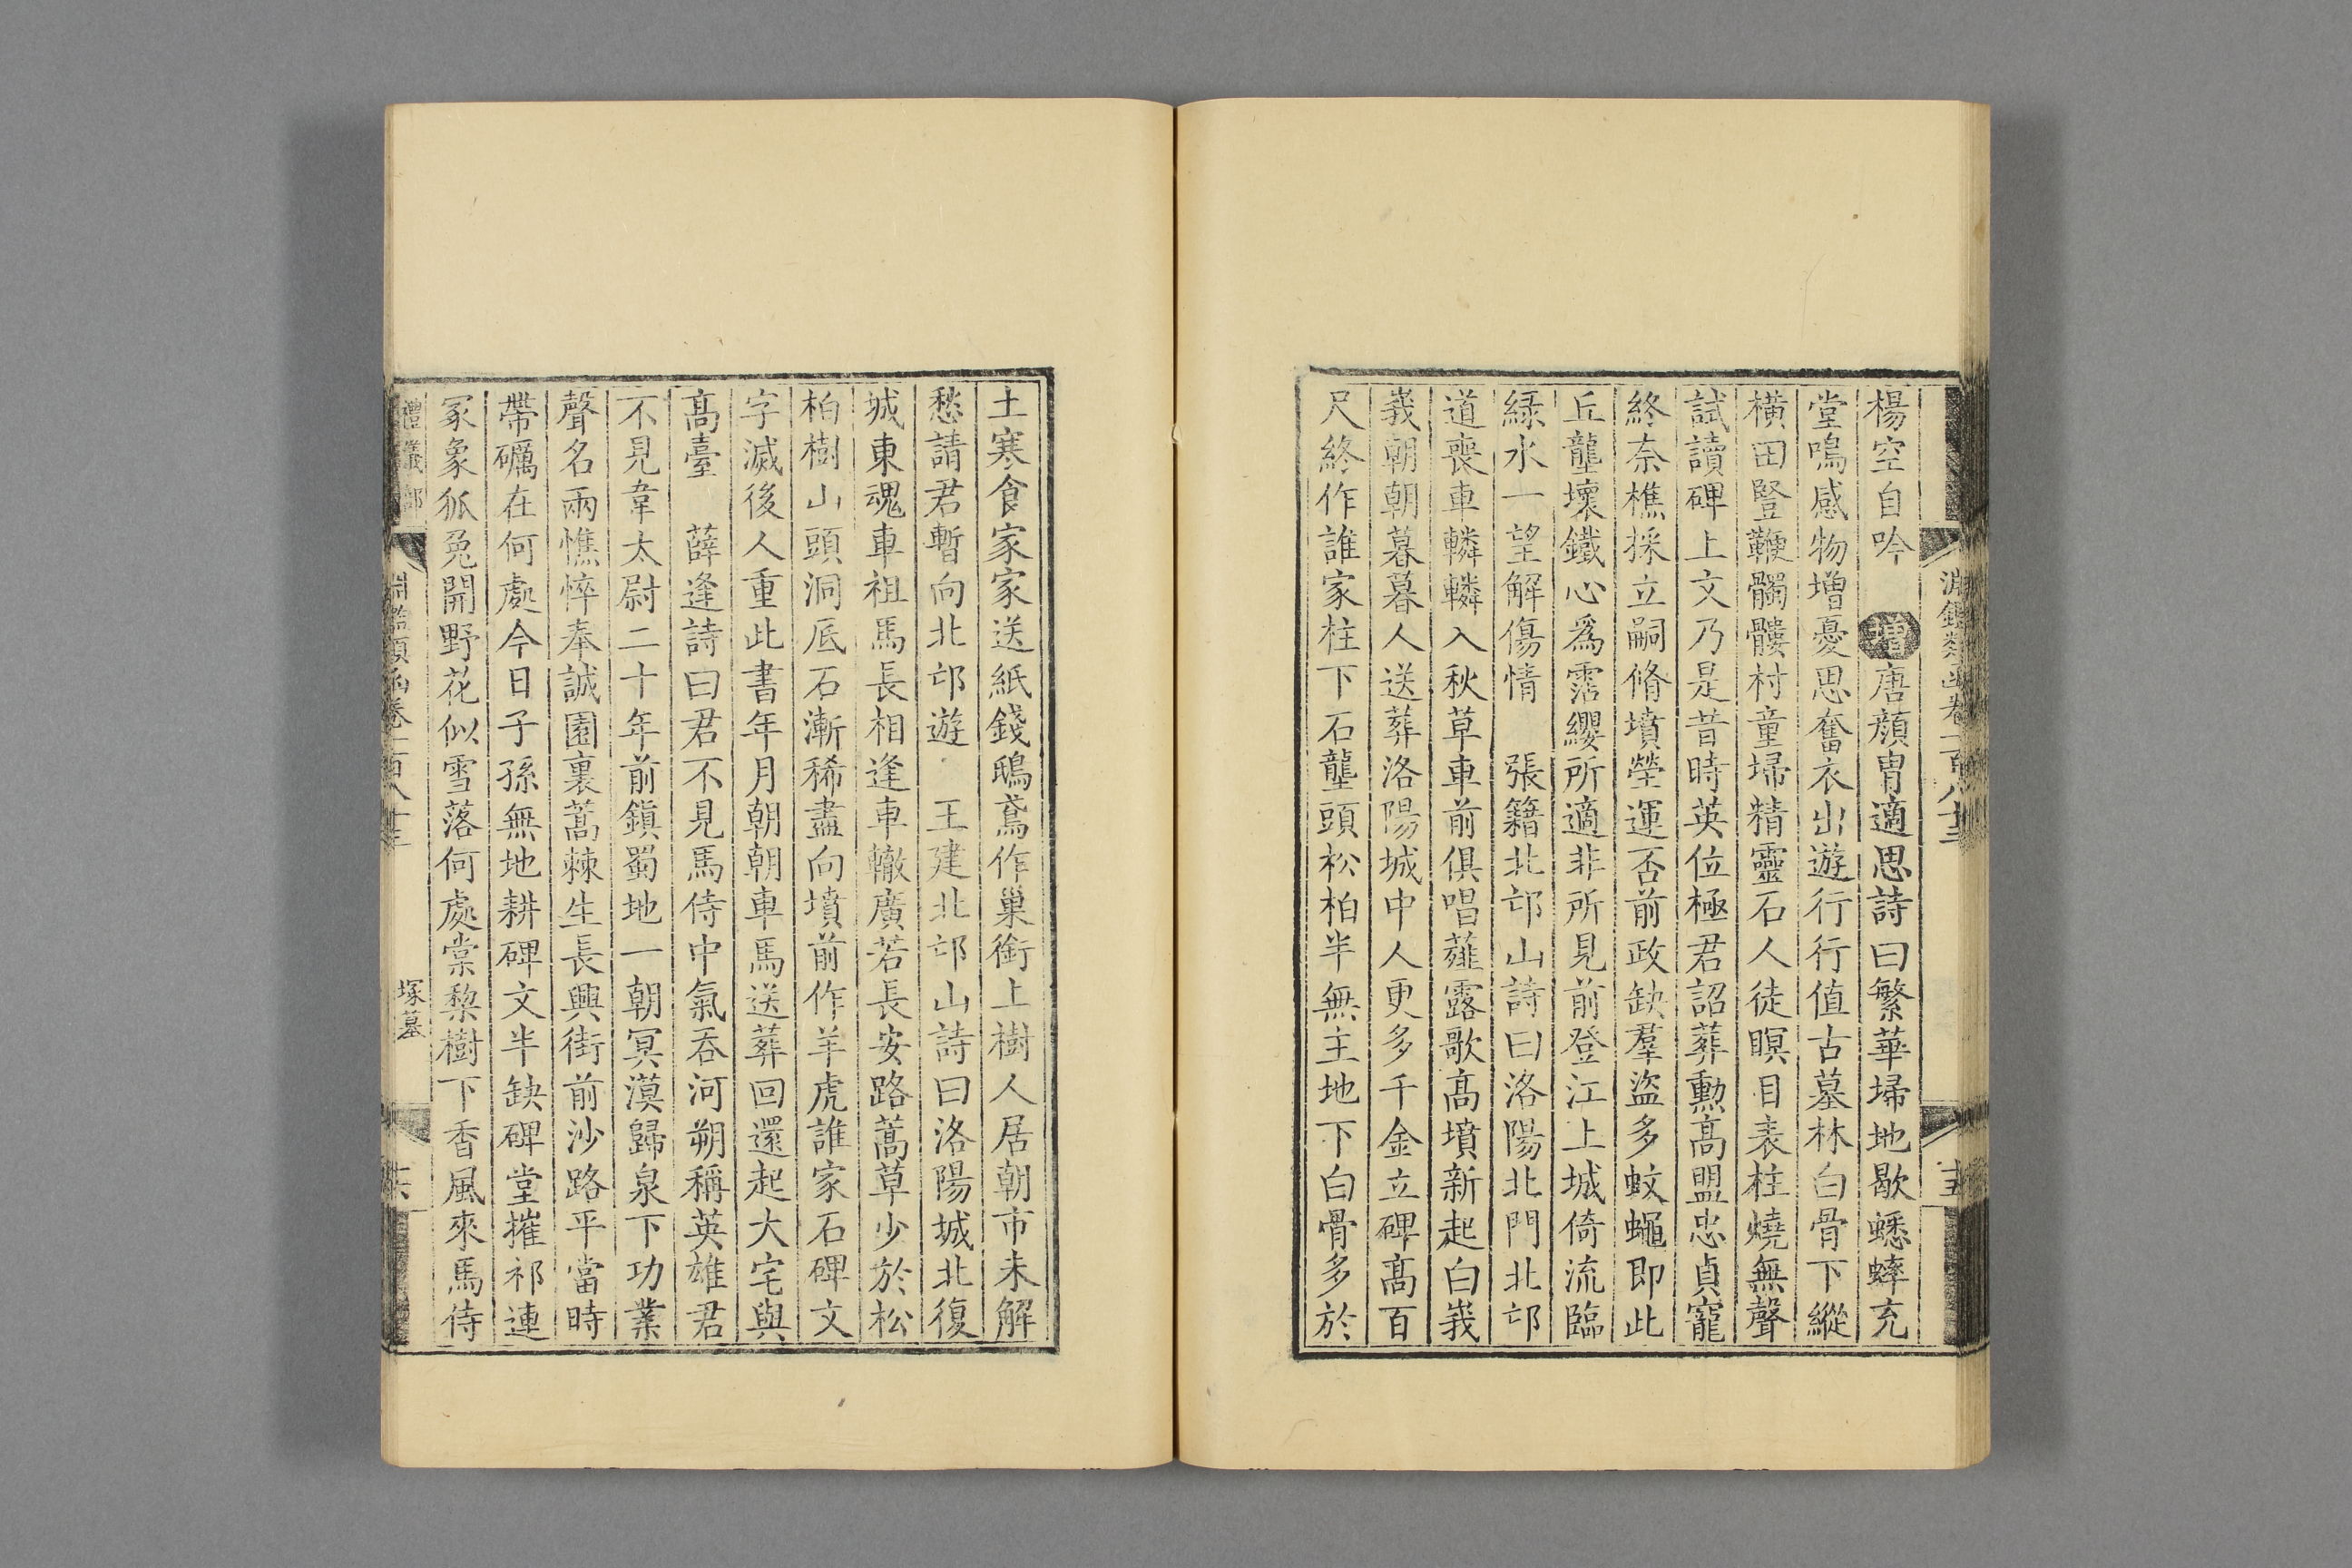 楊空自吟　增唐顔胄適思詩曰繁華埽地歇蟋蟀充
堂鳴感物增憂思奮衣出遊行行值古墓林白骨下縱
橫田豎鞭髑髏村童埽精靈石人徒瞑目表柱燒無聲
試讀碑上文乃是昔時英位極君詔葬勲高盟忠貞寵
終奈樵採立嗣脩墳塋運否前政缺羣盜多蚊蠅即此
丘壟壞鐵心爲霑纓所適非所見前登江上城倚流臨
緑水一望解傷情　張籍北邙山詩曰洛陽北門北邙
道喪車轔轔入秋草車前俱唱薤露歌高墳新起白峩
峩朝朝暮暮人送葬洛陽城中人更多千金立碑高百
尺終作誰家柱下石壟頭松柏半無主地下白骨多於
土寒食家家送紙錢鴟鳶作巢銜上樹人居朝市未解
愁請君暫向北邙遊　王建北邙山詩曰洛陽城北復
城東魂車祖馬長相逢車轍廣若長安路蒿草少於松
柏樹山頭洞底石漸稀盡向墳前作羊虎誰家石碑文
字滅後人重此書年月朝朝車馬送葬回還起大宅與
高臺　薛逢詩曰君不見馬侍中氣吞河朔稱英雄君
不見韋太尉二十年前鎭蜀地一朝冥漠歸泉下功業
聲名兩憔悴奉誠園裏蒿棘生長興街前沙路平當時
帶礪在何處今日子孫無地耕碑文半缺碑堂摧祁連
冢象狐兔開野花似雪落何處棠棃樹下香風來馬侍
禮儀部　淵鑑類函卷一百八十三　塚墓